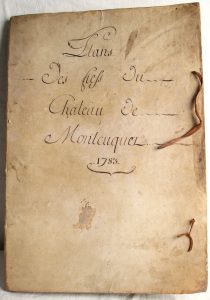 Plans
Des fiefs du
Château de
Montcuquet
1783.